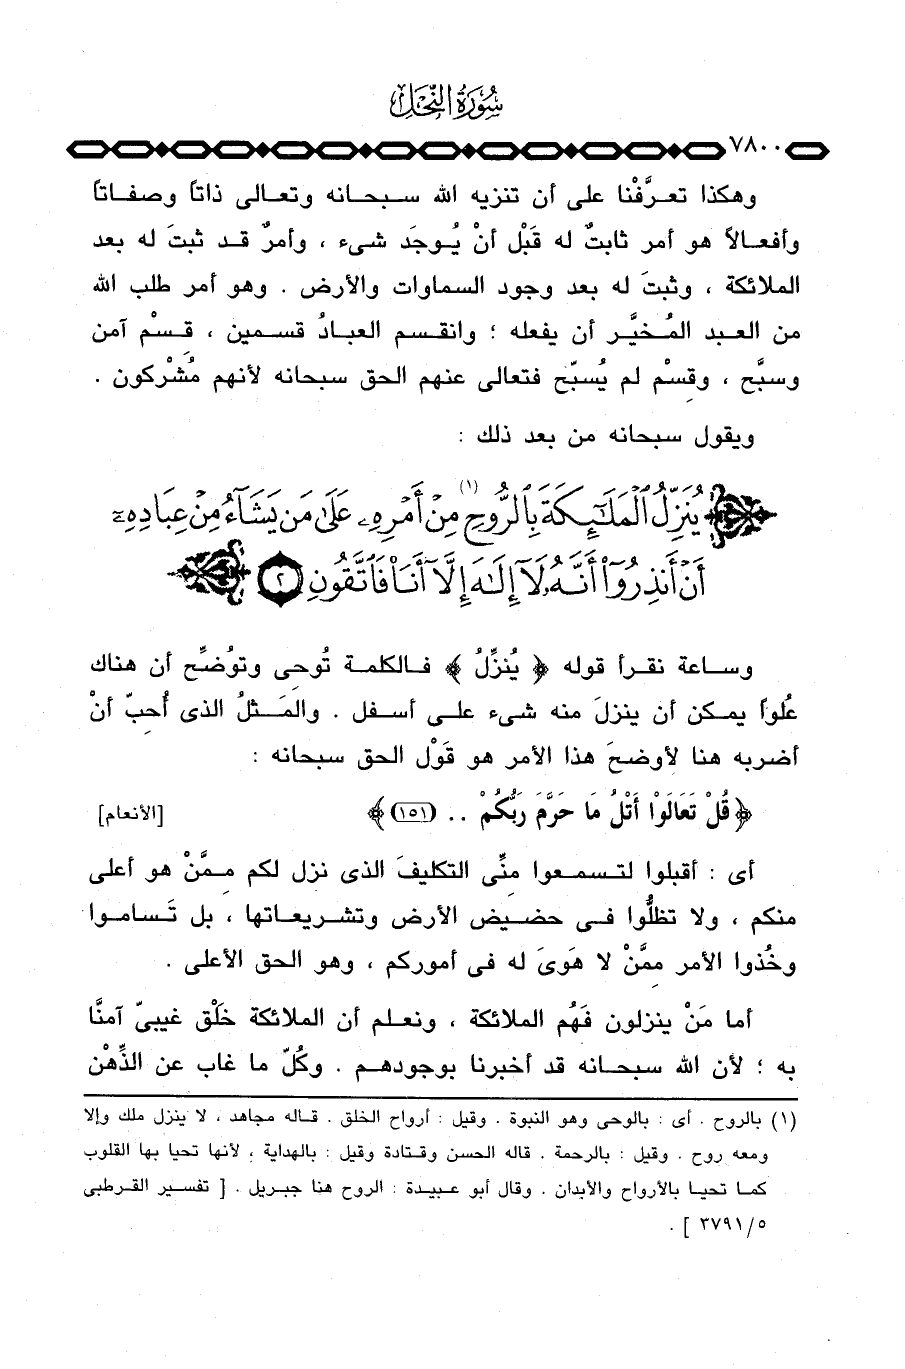 سُورَةُ النَّحْلِ
٧٨٠٠
وهكذا تعرَّفْنا على أن تنزيه الله سبحانه وتعالى ذاتاً وصفاتاً
وأفعالاً هو أمر ثابتٌ له قَبْل أنْ يُوجَد شىء ، وأمرٌ قد ثبتَ له بعد
الملائكة ، وثبتَ له بعد وجود السماوات والأرض . وهو أمر طلب الله
من العبد المُخيَّر أن يفعله ؛ وانقسم العبادُ قسمين ، قسْم آمن
وسبَّح ، وقسْم لم يُسبّح فتعالى عنهم الحق سبحانه لأنهم مُشْركون .
ويقول سبحانه من بعد ذلك :
يُنَزِّلُ الْمَلَٰٓئِكَةَ بِالرُّوحِ (١) مِنْ أَمْرِهِۦ عَلَىٰ مَن يَشَآءُ مِنْ عِبَادِهِۦٓ
أَنْ أَنذِرُوٓا۟ أَنَّهُۥ لَآ إِلَٰهَ إِلَّآ أَنَا۠ فَاتَّقُونِ ٢
وساعة نقرأ قوله ﴿ يُنزِّلُ ﴾ فالكلمة تُوحى وتوُضِّح أن هناك
عُلواً يمكن أن ينزلَ منه شىء على أسفل . والمَثلُ الذى أُحبّ أنْ
أضربه هنا لأوضحَ هذا الأمر هو قَوْل الحق سبحانه :
﴿ قُلْ تَعَالَوْا أَتْلُ مَا حَرَّمَ رَبُّكُمْ .. (١٥١) ﴾ [الأنعام]
أى : أقبلوا لتسمعوا منِّى التكليفَ الذى نزل لكم ممَّنْ هو أعلى
منكم ، ولا تظلُّوا فى حضيض الأرض وتشريعاتها ، بل تَسامَوا
وخُذوا الأمر ممَّنْ لا هَوىَ له فى أموركم ، وهو الحق الأعلى .
أما مَنْ ينزلون فَهُم الملائكة ، ونعلم أن الملائكة خلْق غيبىّ آمنَّا
به ؛ لأن الله سبحانه قد أخبرنا بوجودهم . وكُلّ ما غاب عن الذِّهْن
(١) بالروح . أى : بالوحى وهو النبوة . وقيل : أرواح الخلق . قاله مجاهد ، لا ينزل ملك وإلا
ومعه روح . وقيل : بالرحمة . قاله الحسن وقتادة وقيل : بالهداية ، لأنها تحيا بها القلوب
كما تحيا بالأرواح والأبدان . وقال أبو عبيدة : الروح هنا جبريل . [ تفسير القرطبى
٥/ ٣٧٩١ ] .